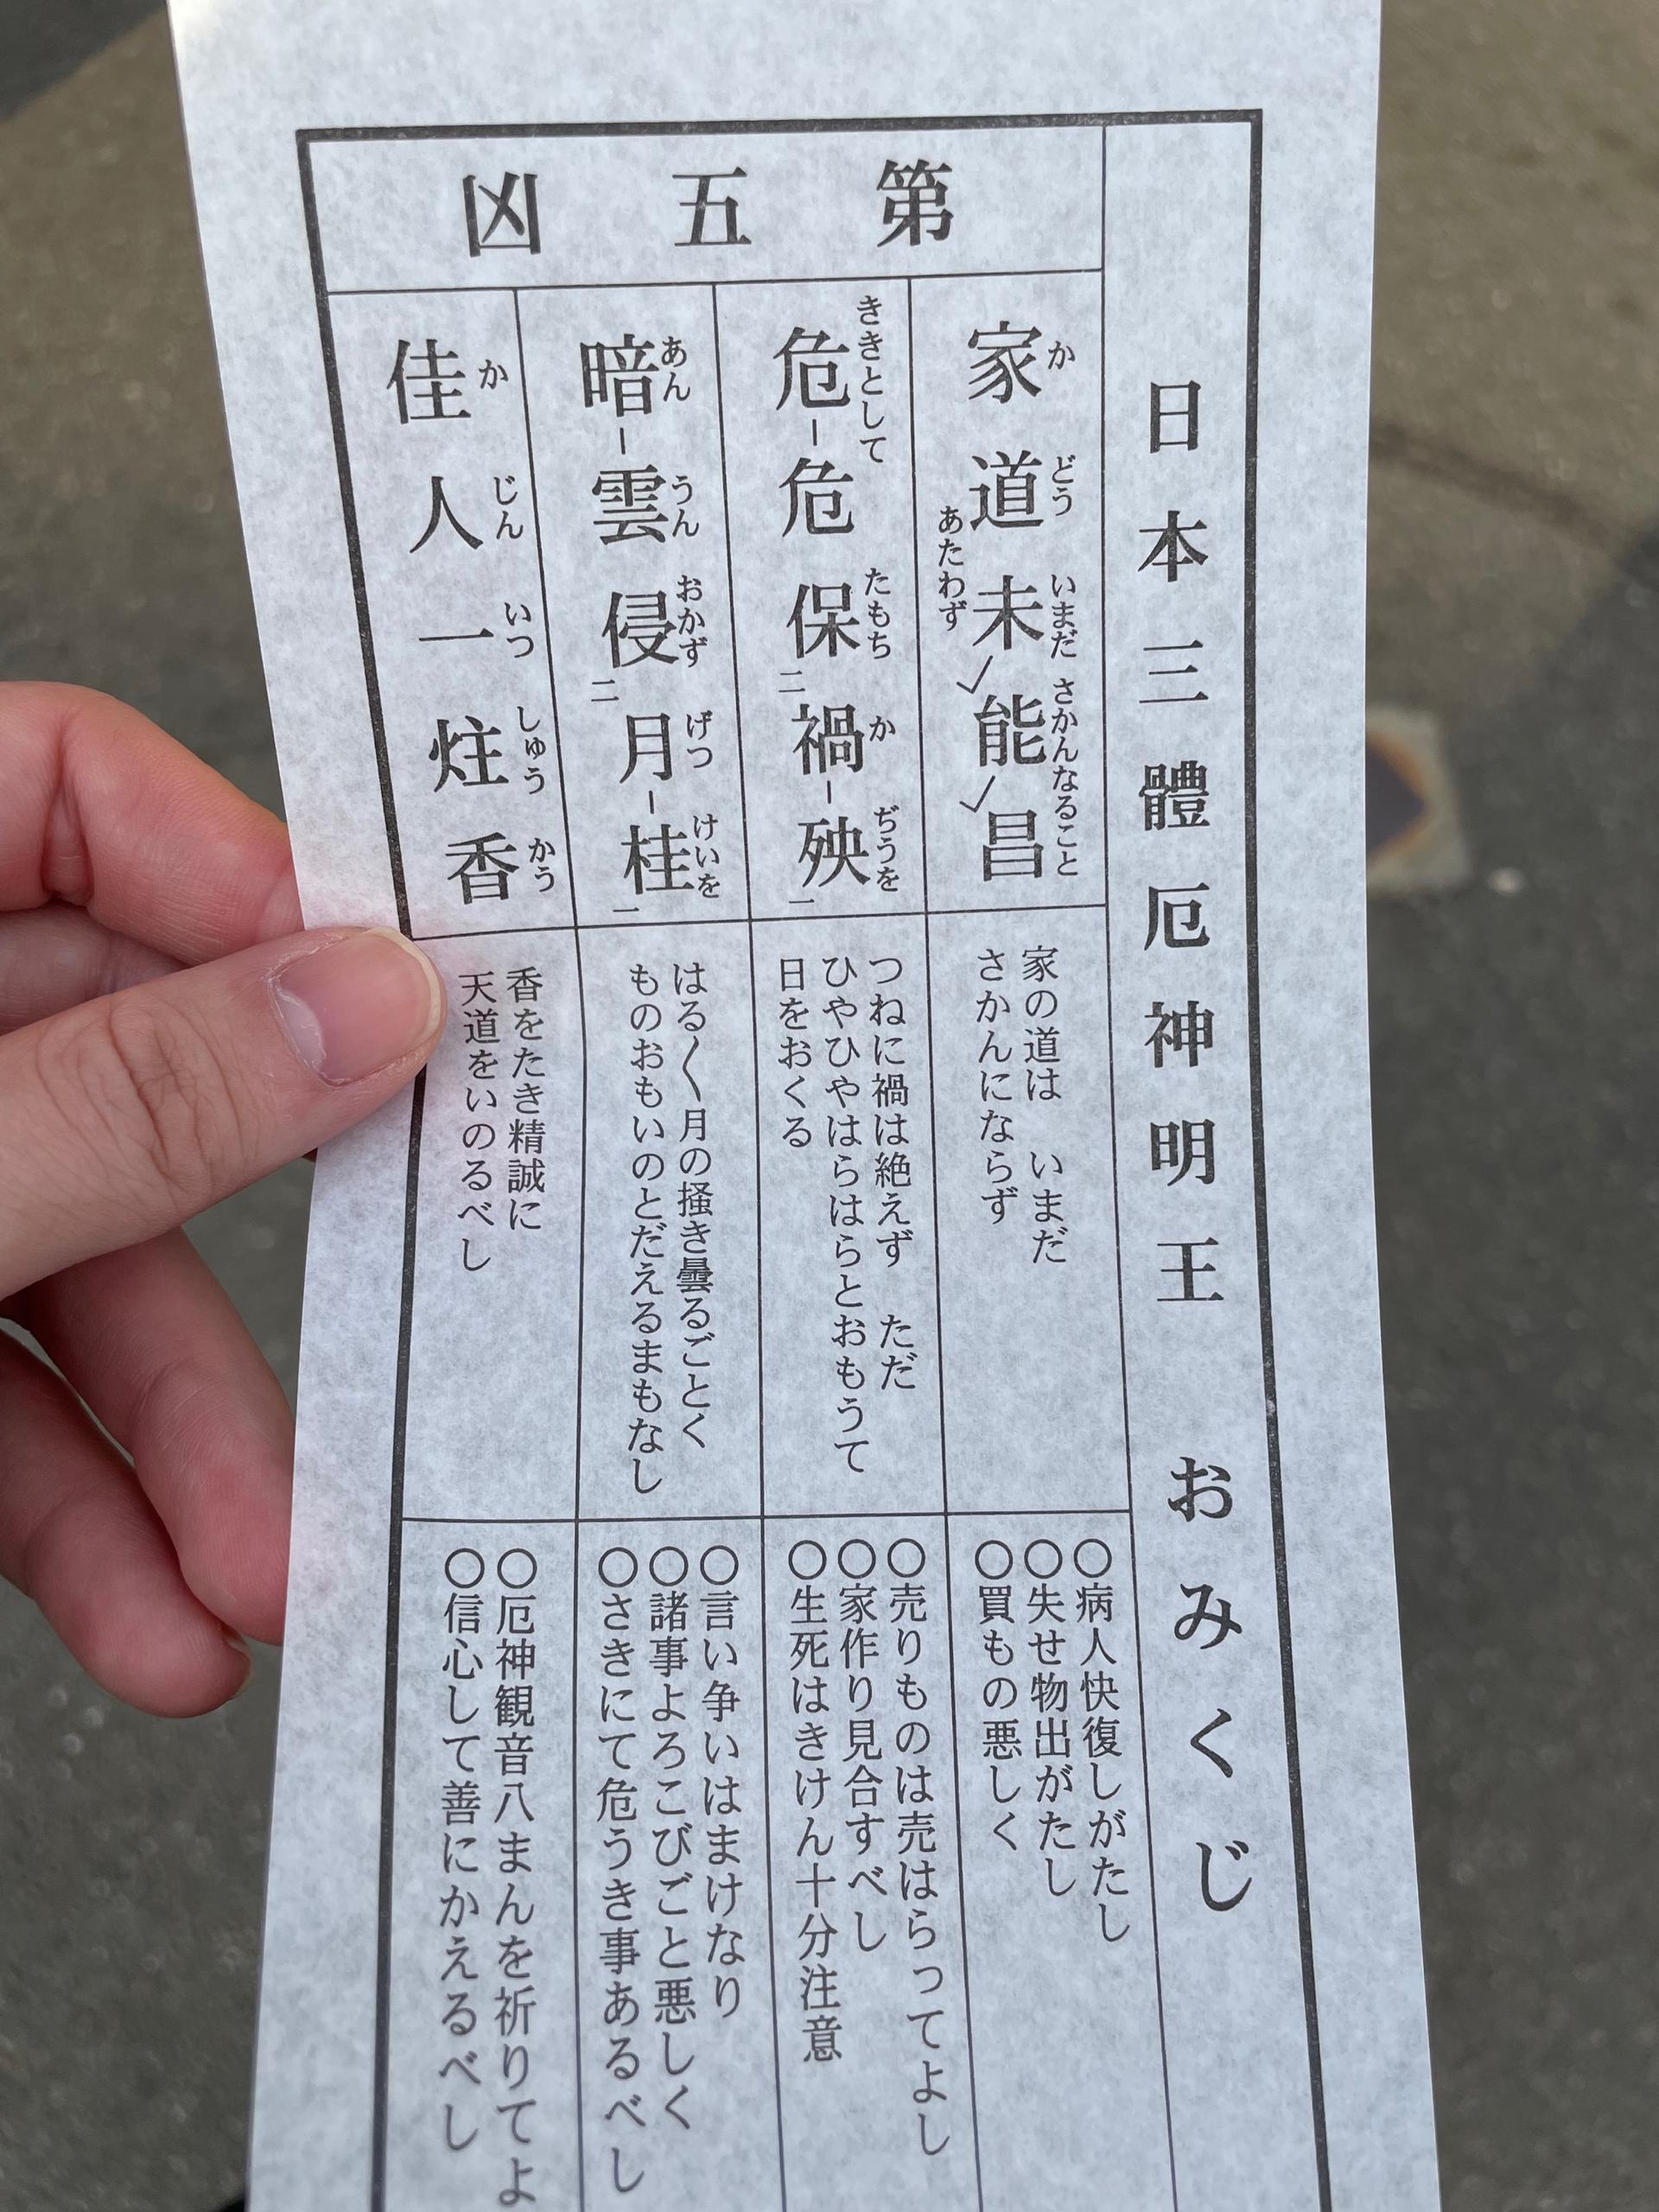 日本三體厄神明王 おみくじ
第五凶
家道未能昌
か どう いまだ さかんなること あたわず
家の道は いまだ
さかんにならず
○病人快復しがたし
○失せ物出がたし
○買もの悪しく
危-危保二禍-殃一
ききとして たもち か ぢうを
つねに禍は絶えず ただ
ひやひやはらはらとおもうて
日をおくる
○売りものは売はらってよし
○家作り見合すべし
○生死はきけん十分注意
暗-雲侵二月-桂一
あん うん おかず げつ けいを
はる〱月の掻き曇るごとく
ものおもいのとだえるまもなし
○言い争いはまけなり
○諸事よろこびごと悪しく
○さきにて危うき事あるべし
佳人一炷香
か じん いつ しゅう かう
香をたき精誠に
天道をいのるべし
○厄神観音八まんを祈りてよ
○信心して善にかえるべし